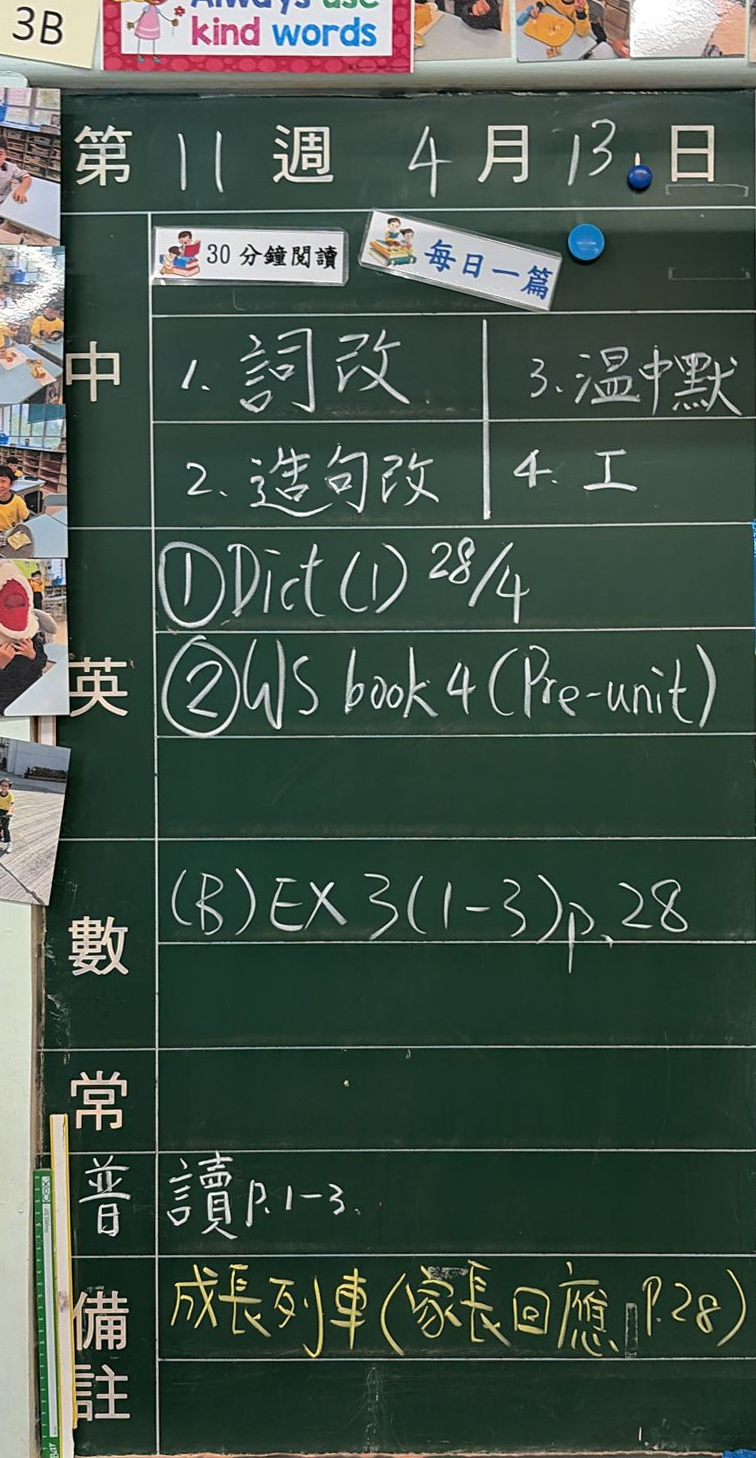 3B
Always use
kind words
第 11 週 4 月 13 日
30分鐘閱讀 每日一篇
中
1. 詞改
3. 溫中默
2. 造句改
4. 工
英
①Dict (1) 28/4
②WS book 4 (Pre-unit)
數
(B) EX 3(1-3) p.28
常
普
讀 P.1-3.
備註
成長列車(家長回應 P.28)